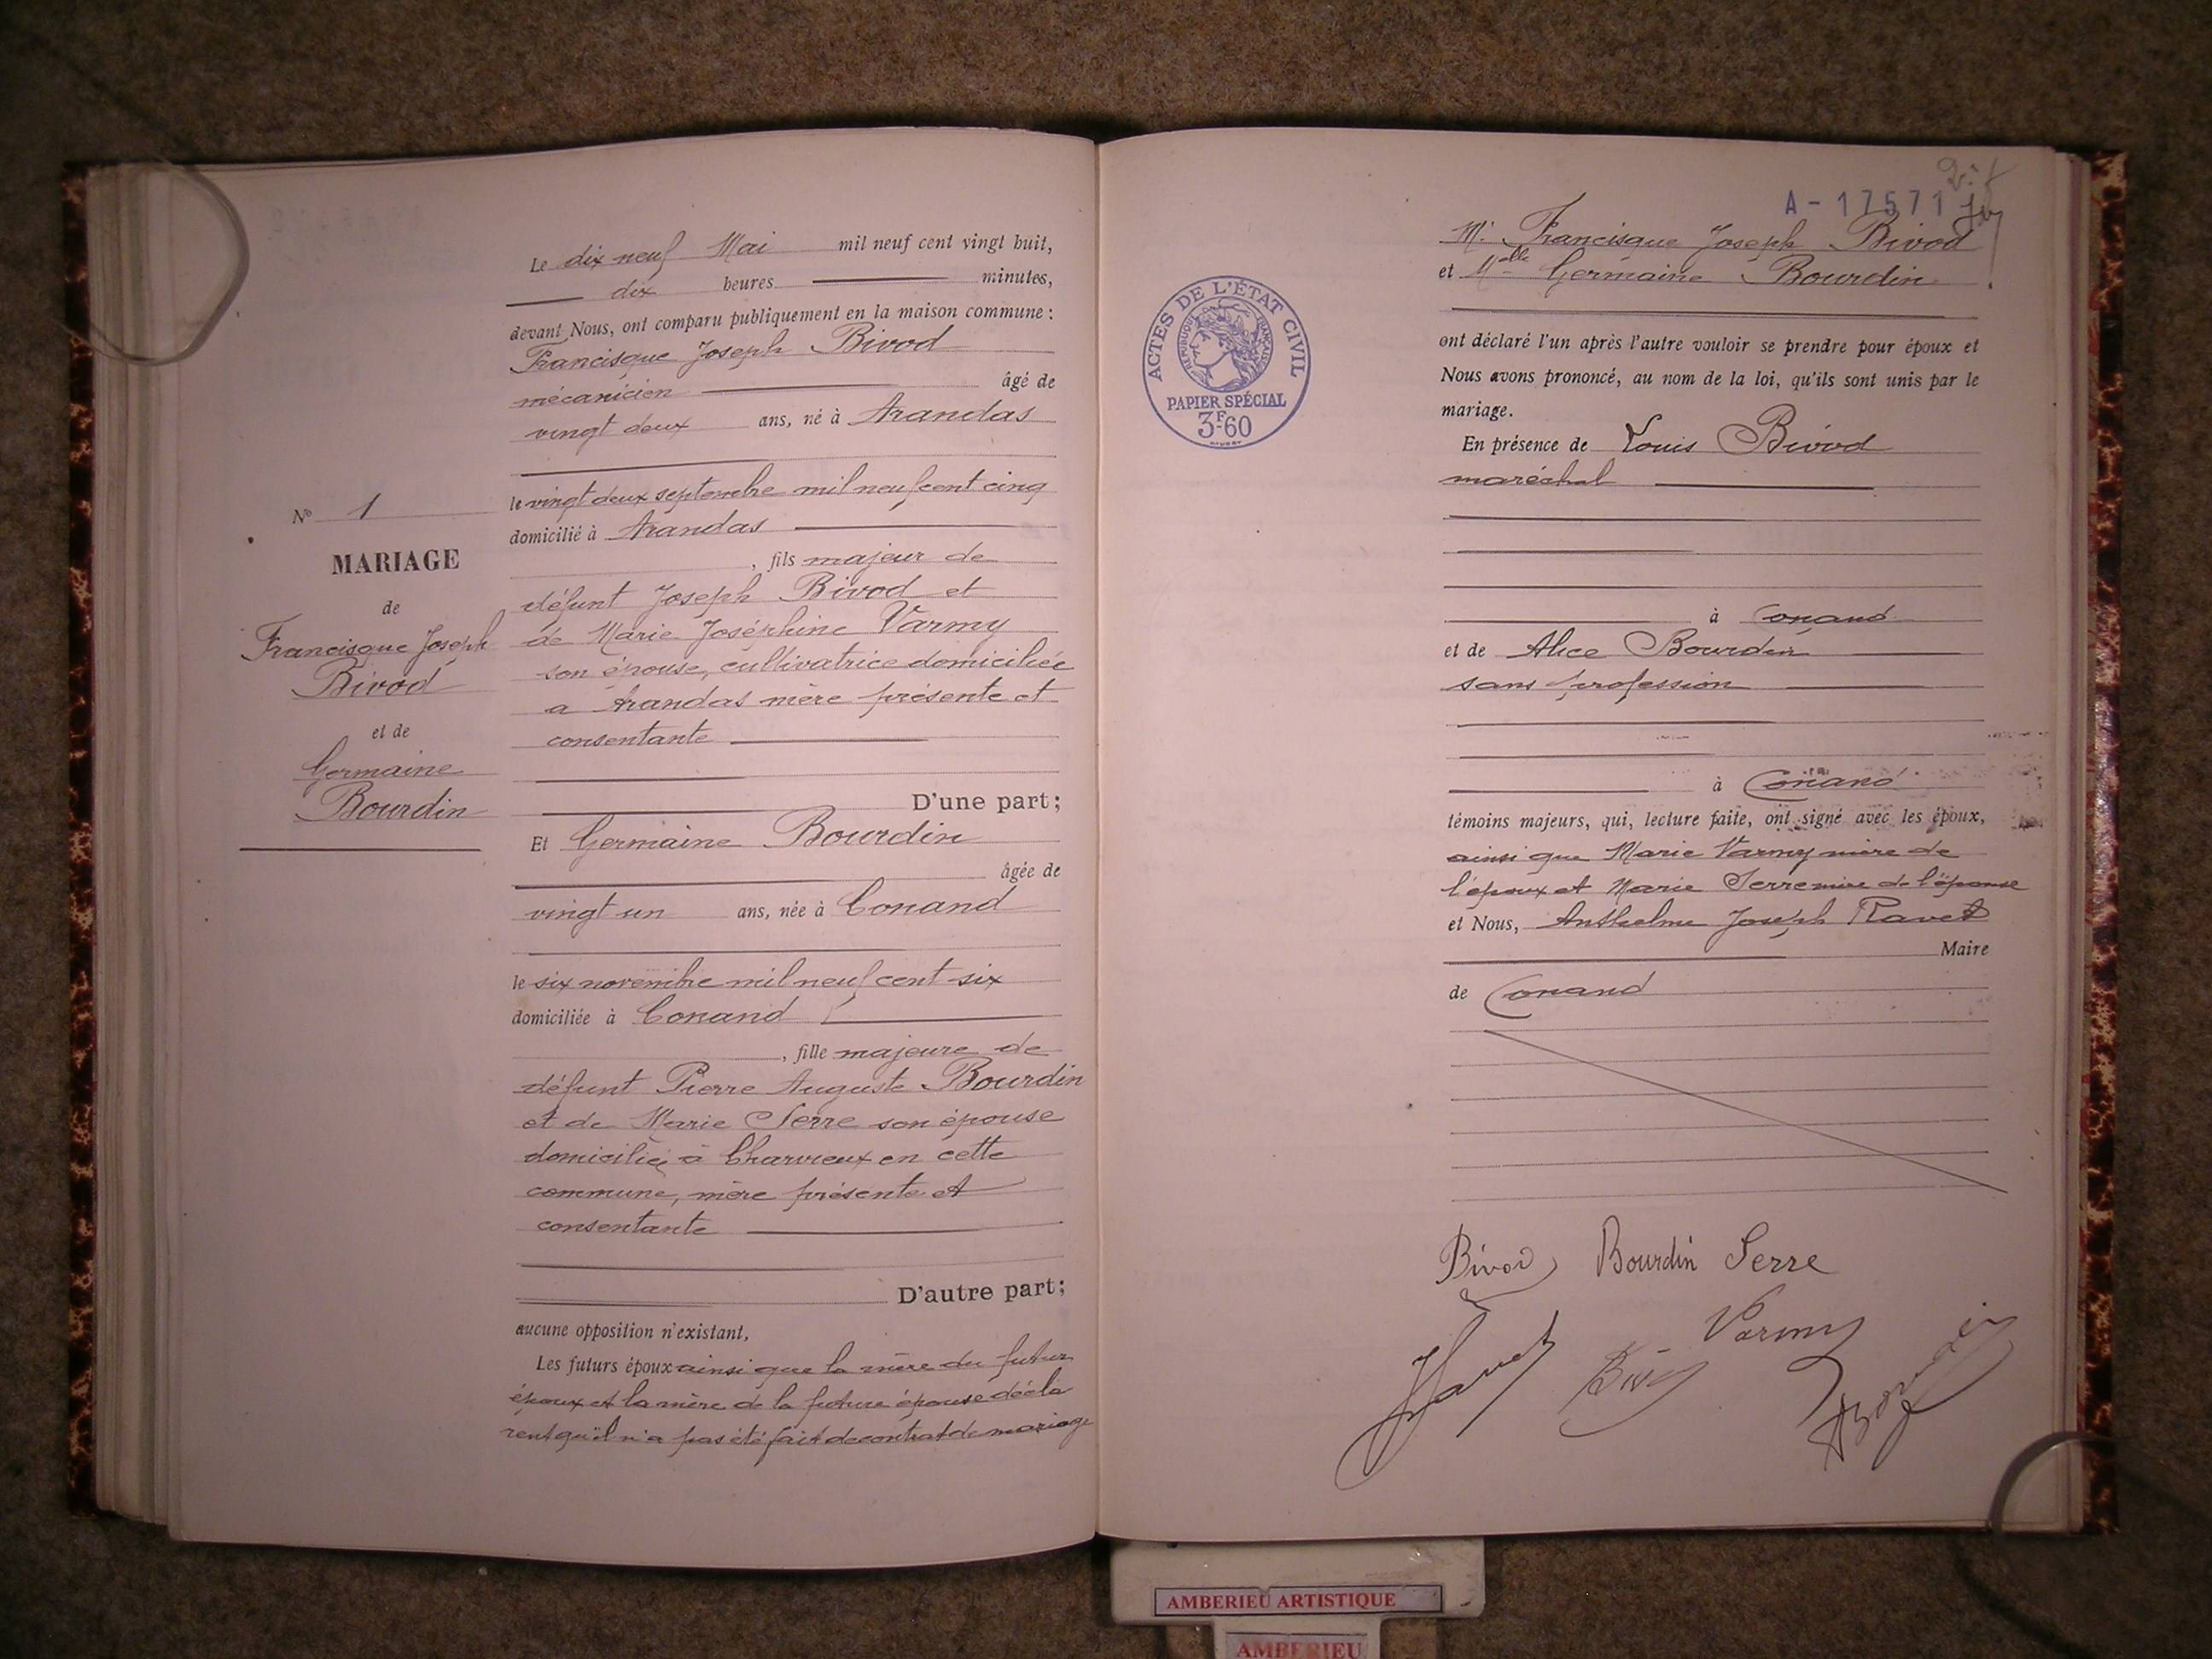 Le dix neuf Mai mil neuf cent vingt huit,
dix heures minutes,
devant Nous, ont comparu publiquement en la maison commune :
Francisque Joseph Bivod
mécanicien âgé de
vingt deux ans, né à Arandas
le vingt deux septembre mil neuf cent cinq
domicilié à Arandas
, fils majeur de
défunt Joseph Bivod et
de Marie Joséphine Varmy
son épouse, cultivatrice domiciliée
a Arandas mère présente et
consentante
D'une part;
Et Germaine Bourdin
âgée de
vingt un ans, née à Conand
le six novembre mil neuf cent six
domiciliée à Conand
, fille majeure de
défunt Pierre Auguste Bourdin
et de Marie Serre son épouse
domiciliée à Charvieux en cette
commune, mère présente et
consentante
D'autre part;
aucune opposition n'existant,
Les futurs époux ainsi que la mère du futur
époux et la mère de la future épouse décla
rent qu'il n'a pas été fait de contrat de mariage
N° 1
MARIAGE
de
Francisque Joseph
Bivod
et de
Germaine
Bourdin
A-17571
M. Francisque Joseph Bivod
et Melle Germaine Bourdin
ont déclaré l'un après l'autre vouloir se prendre pour époux et
Nous avons prononcé, au nom de la loi, qu'ils sont unis par le
mariage.
En présence de Louis Bivod
maréchal
à Conand
et de Alice Bourdin
sans profession
à Conand
témoins majeurs, qui, lecture faite, ont signé avec les époux,
ainsi que Marie Varmy mère de
l'époux et Marie Serre mère de l'épouse
et Nous, Anthelme Joseph Ravet
Maire
de Conand
Bivod Bourdin Serre
Varmy
Ravet Bivod Bourdin
ACTES DE L'ÉTAT CIVIL
RÉPUBLIQUE FRANÇAISE
PAPIER SPÉCIAL
3F60
AMBERIEU ARTISTIQUE
AMBERIEU